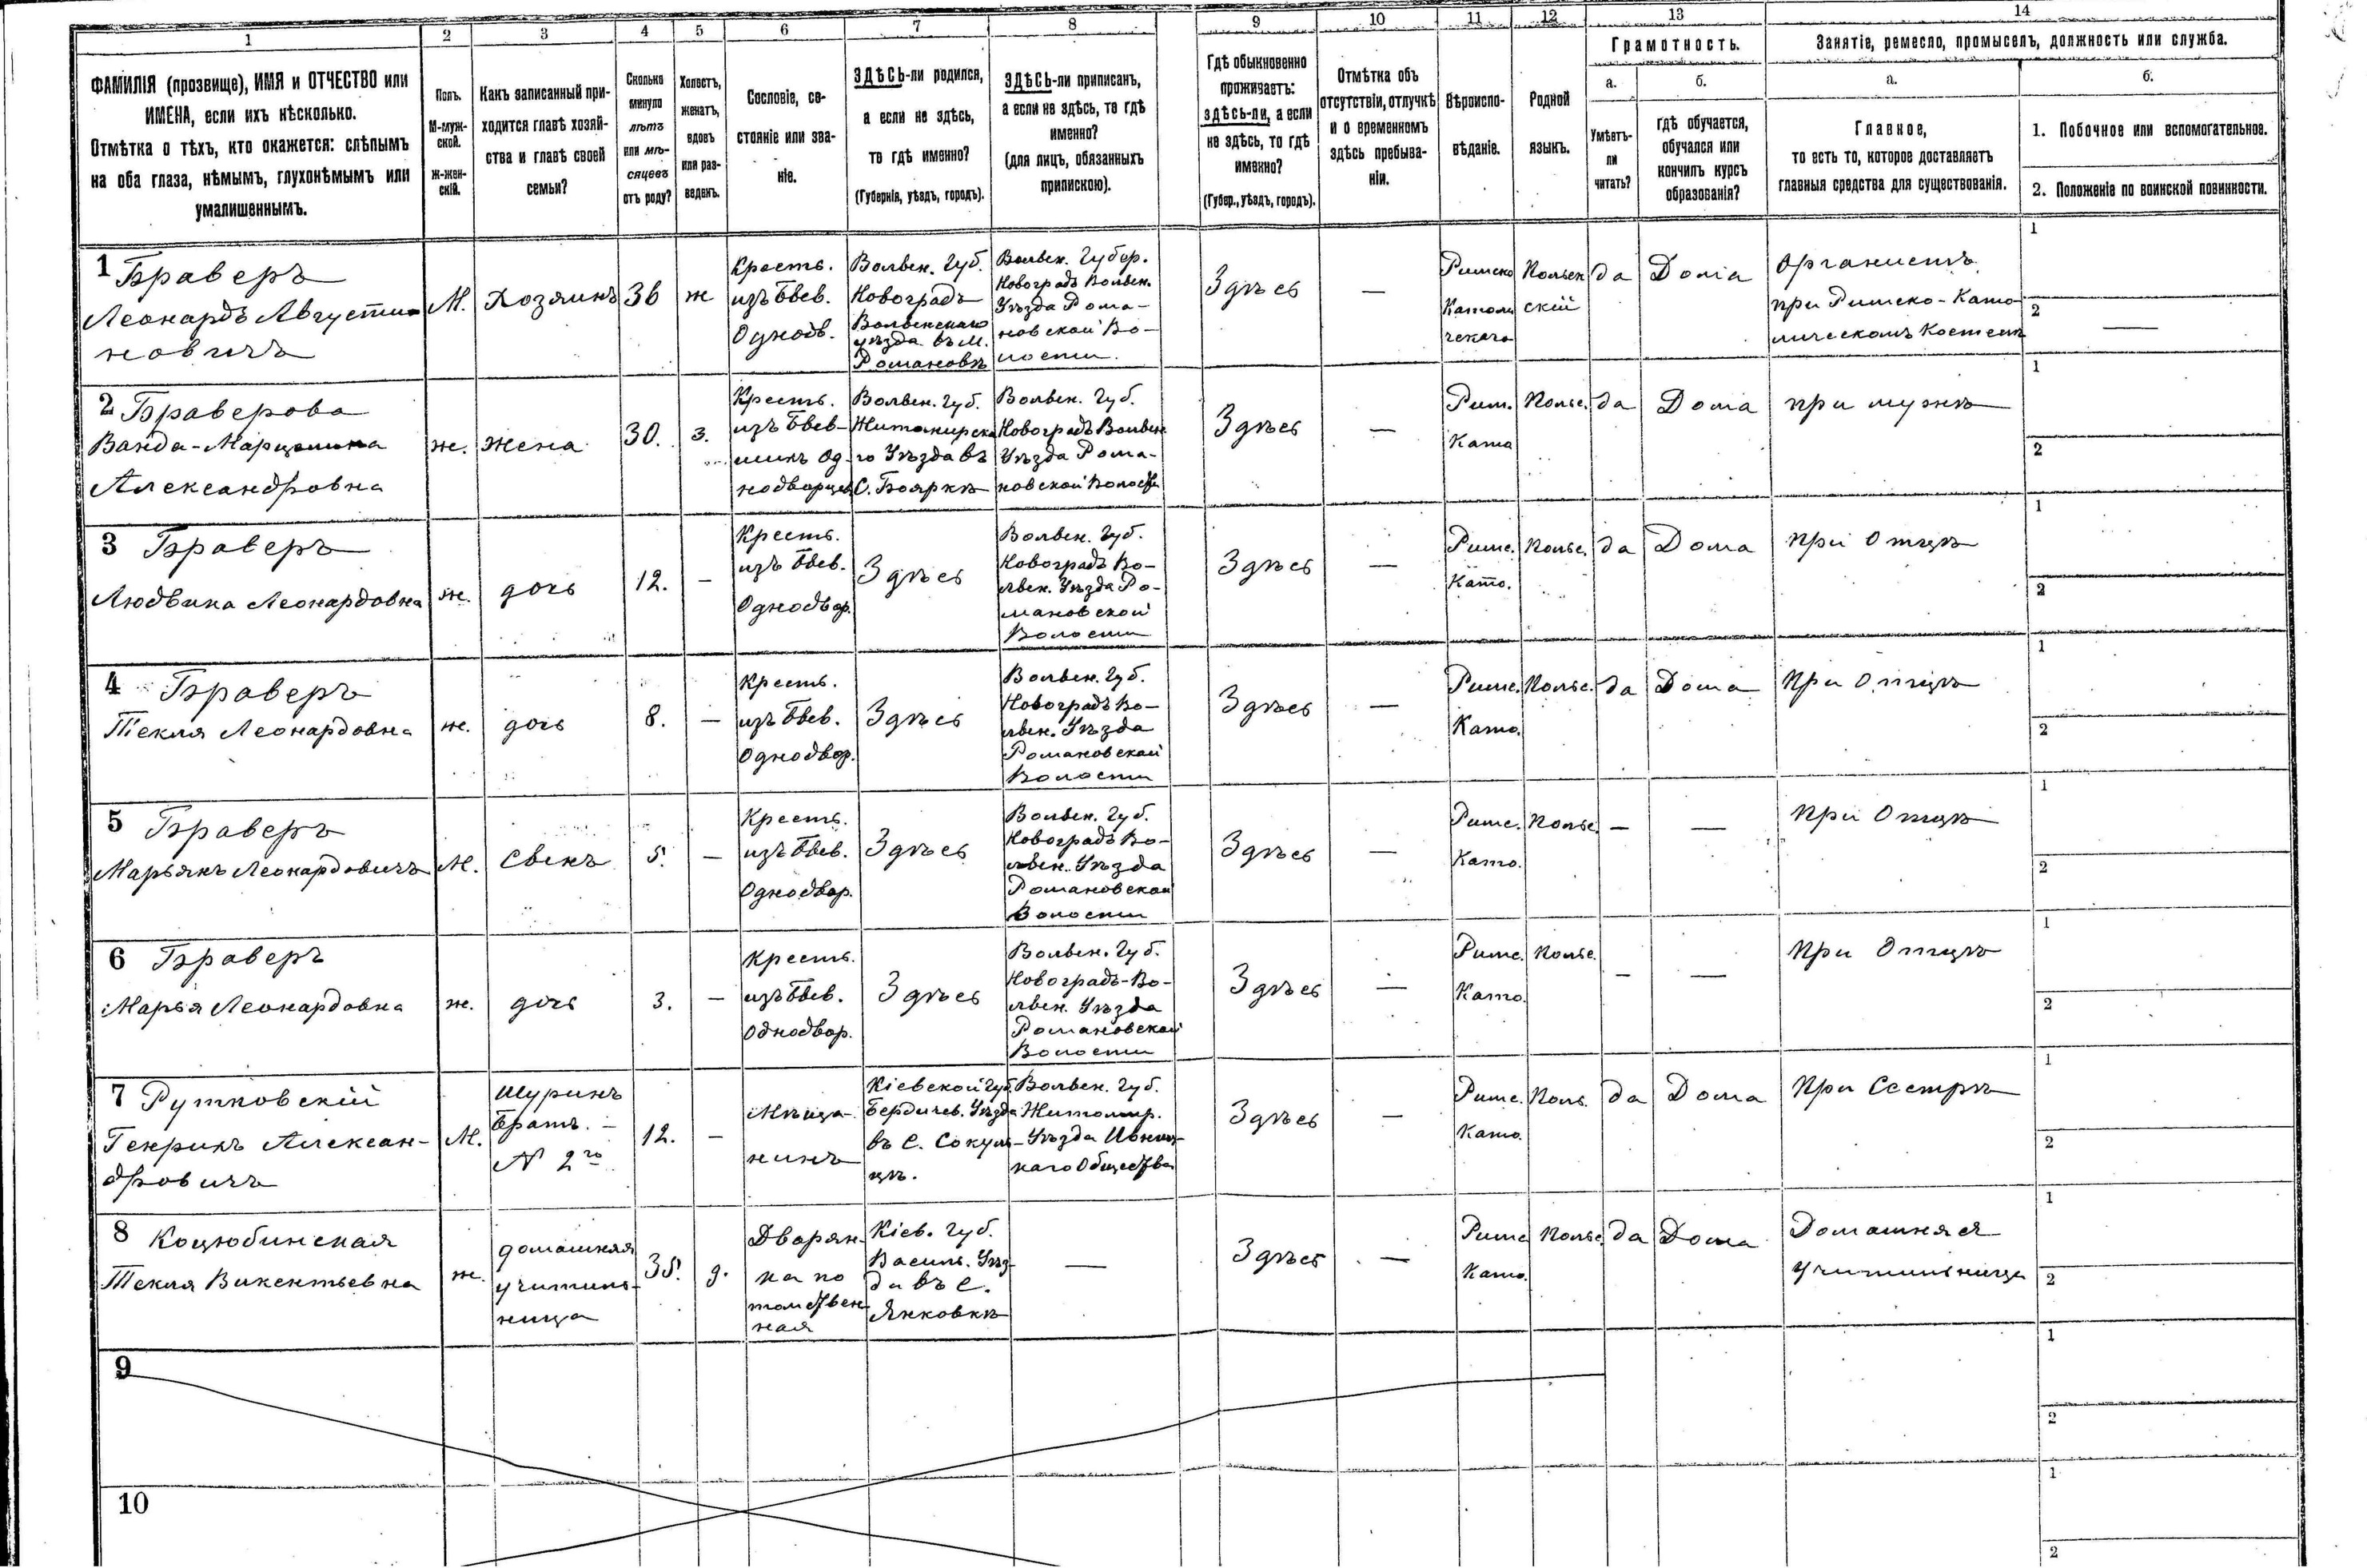 1 2 3 4 5 6 7 8 9 10 11 12 13 14
ФАМИЛІЯ (прозвище), ИМЯ и ОТЧЕСТВО или
ИМЕНА, если ихъ нѣсколько.
Отмѣтка о тѣхъ, кто окажется: слѣпымъ
на оба глаза, нѣмымъ, глухонѣмымъ или
умалишеннымъ.
Полъ.
М-муж-
ской.
Ж-жен-
скій.
Какъ записанный при-
ходится главѣ хозяй-
ства и главѣ своей
семьи?
Сколько
минуло
лѣтъ
или мѣ-
сяцевъ
отъ роду?
Холостъ,
женатъ,
вдовъ
или раз-
веденъ.
Сословіе, со-
стояніе или зва-
ніе.
ЗДѢСЬ-ли родился,
а если не здѣсь,
то гдѣ именно?
(Губернія, уѣздъ, городъ).
ЗДѢСЬ-ли приписанъ,
а если не здѣсь, то гдѣ
именно?
(для лицъ, обязанныхъ
припискою).
Гдѣ обыкновенно
проживаетъ:
здѣсь-ли, а если
не здѣсь, то гдѣ
именно?
(Губер., уѣздъ, городъ).
Отмѣтка объ
отсутствіи, отлучкѣ
и о временномъ
здѣсь пребыва-
ніи.
Вѣроиспо-
вѣданіе.
Родной
языкъ.
Грамотность.
а.
Умѣетъ-
ли
читать?
б.
гдѣ обучается,
обучался или
кончилъ курсъ
образованія?
Занятіе, ремесло, промыселъ, должность или служба.
а.
Главное,
то есть то, которое доставляетъ
главныя средства для существованія.
б.
1. Побочное или вспомогательное.
2. Положеніе по воинской повинности.
1 Браверъ
Леонардъ Августи-
новичъ
М.
Хозяинъ
36
ж
Кресть.
изъ бвев.
Однодв.
Волвен. Губ.
Новоградъ
Волвенскаго
уѣзда въ м.
Романовѣ
Волвен. Губер.
Новоградъ Волвен.
Уѣзда Рома-
новской Во-
лости.
Здѣсь
—
Римско
Католи
ческаго
Польск
скій
да
Дома
Органистъ
при Римско-Като-
лическомъ Костелѣ
1
2 —
2 Браверова
Ванда-Марцелина
Александровна
ж.
жена
30.
з.
Кресть.
изъ бвев-
шихъ Од-
нодворцевъ
Волвен. Губ.
Житомирска
го Уѣзда въ
С. Бояркѣ
Волвен. Губ.
Новоградъ Волвен
Уѣзда Рома-
новской Волости
Здѣсь
—
Рим.
Като
Польс.
да
Дома
при мужѣ
1
2
3 Браверъ
Людвика Леонардовна
ж.
дочь
12.
—
Кресть.
изъ бвев.
Однодвор.
Здѣсь
Волвен. Губ.
Новоградъ Во-
лвен. Уѣзда Ро-
мановской
Волости
Здѣсь
—
Римс.
Като.
Польс.
да
Дома
при Отцѣ
1
2
4 Браверъ
Текля Леонардовна
ж.
дочь
8.
—
Кресть.
изъ бвев.
Однодвор.
Здѣсь
Волвен. Губ.
Новоградъ Во-
лвен. Уѣзда
Романовской
Волости
Здѣсь
—
Римс.
Като.
Польс.
да
Дома
При Отцѣ
1
2
5 Браверъ
Марьянъ Леонардовичъ
М.
Свенъ
5.
—
Кресть.
изъ бвев.
Однодвор.
Здѣсь
Волвен. Губ.
Новоградъ Во-
лвен. Уѣзда
Романовской
Волости
Здѣсь
—
Римс.
Като.
Польс.
—
—
При Отцѣ
1
2
6 Браверъ
Марья Леонардовна
ж.
дочь
3.
—
Кресть.
изъ бвев.
Однодвор.
Здѣсь
Волвен. Губ.
Новоградъ-Во-
лвен. Уѣзда
Романовской
Волости
Здѣсь
—
Римс.
Като.
Польс.
—
—
При Отцѣ
1
2
7 Рутковскій
Генрикъ Алексан-
дровичъ
М.
Шуринъ
Братъ. —
№ 2го
12.
—
Мѣща-
нинъ
Кіевской Губ.
Бердичев. Уѣзда
въ С. Сокуль-
цѣ.
Волвен. Губ.
Житомир.
Уѣзда
каго Общества
Здѣсь
—
Римс.
Като.
Поль.
да
Дома
При Сестрѣ
1
2
8 Коцюбинская
Текля Викентьевна
ж.
домашняя
учитель-
ница
35.
д.
Дворян-
ка по
томствен-
ная
Кіев. Губ.
Василь. Уѣз-
да въ С.
Янковкѣ
—
Здѣсь
—
Римс
Като.
Польс.
да
Дома
Домашняя
учительница
1
2
9
1
2
10
1
2